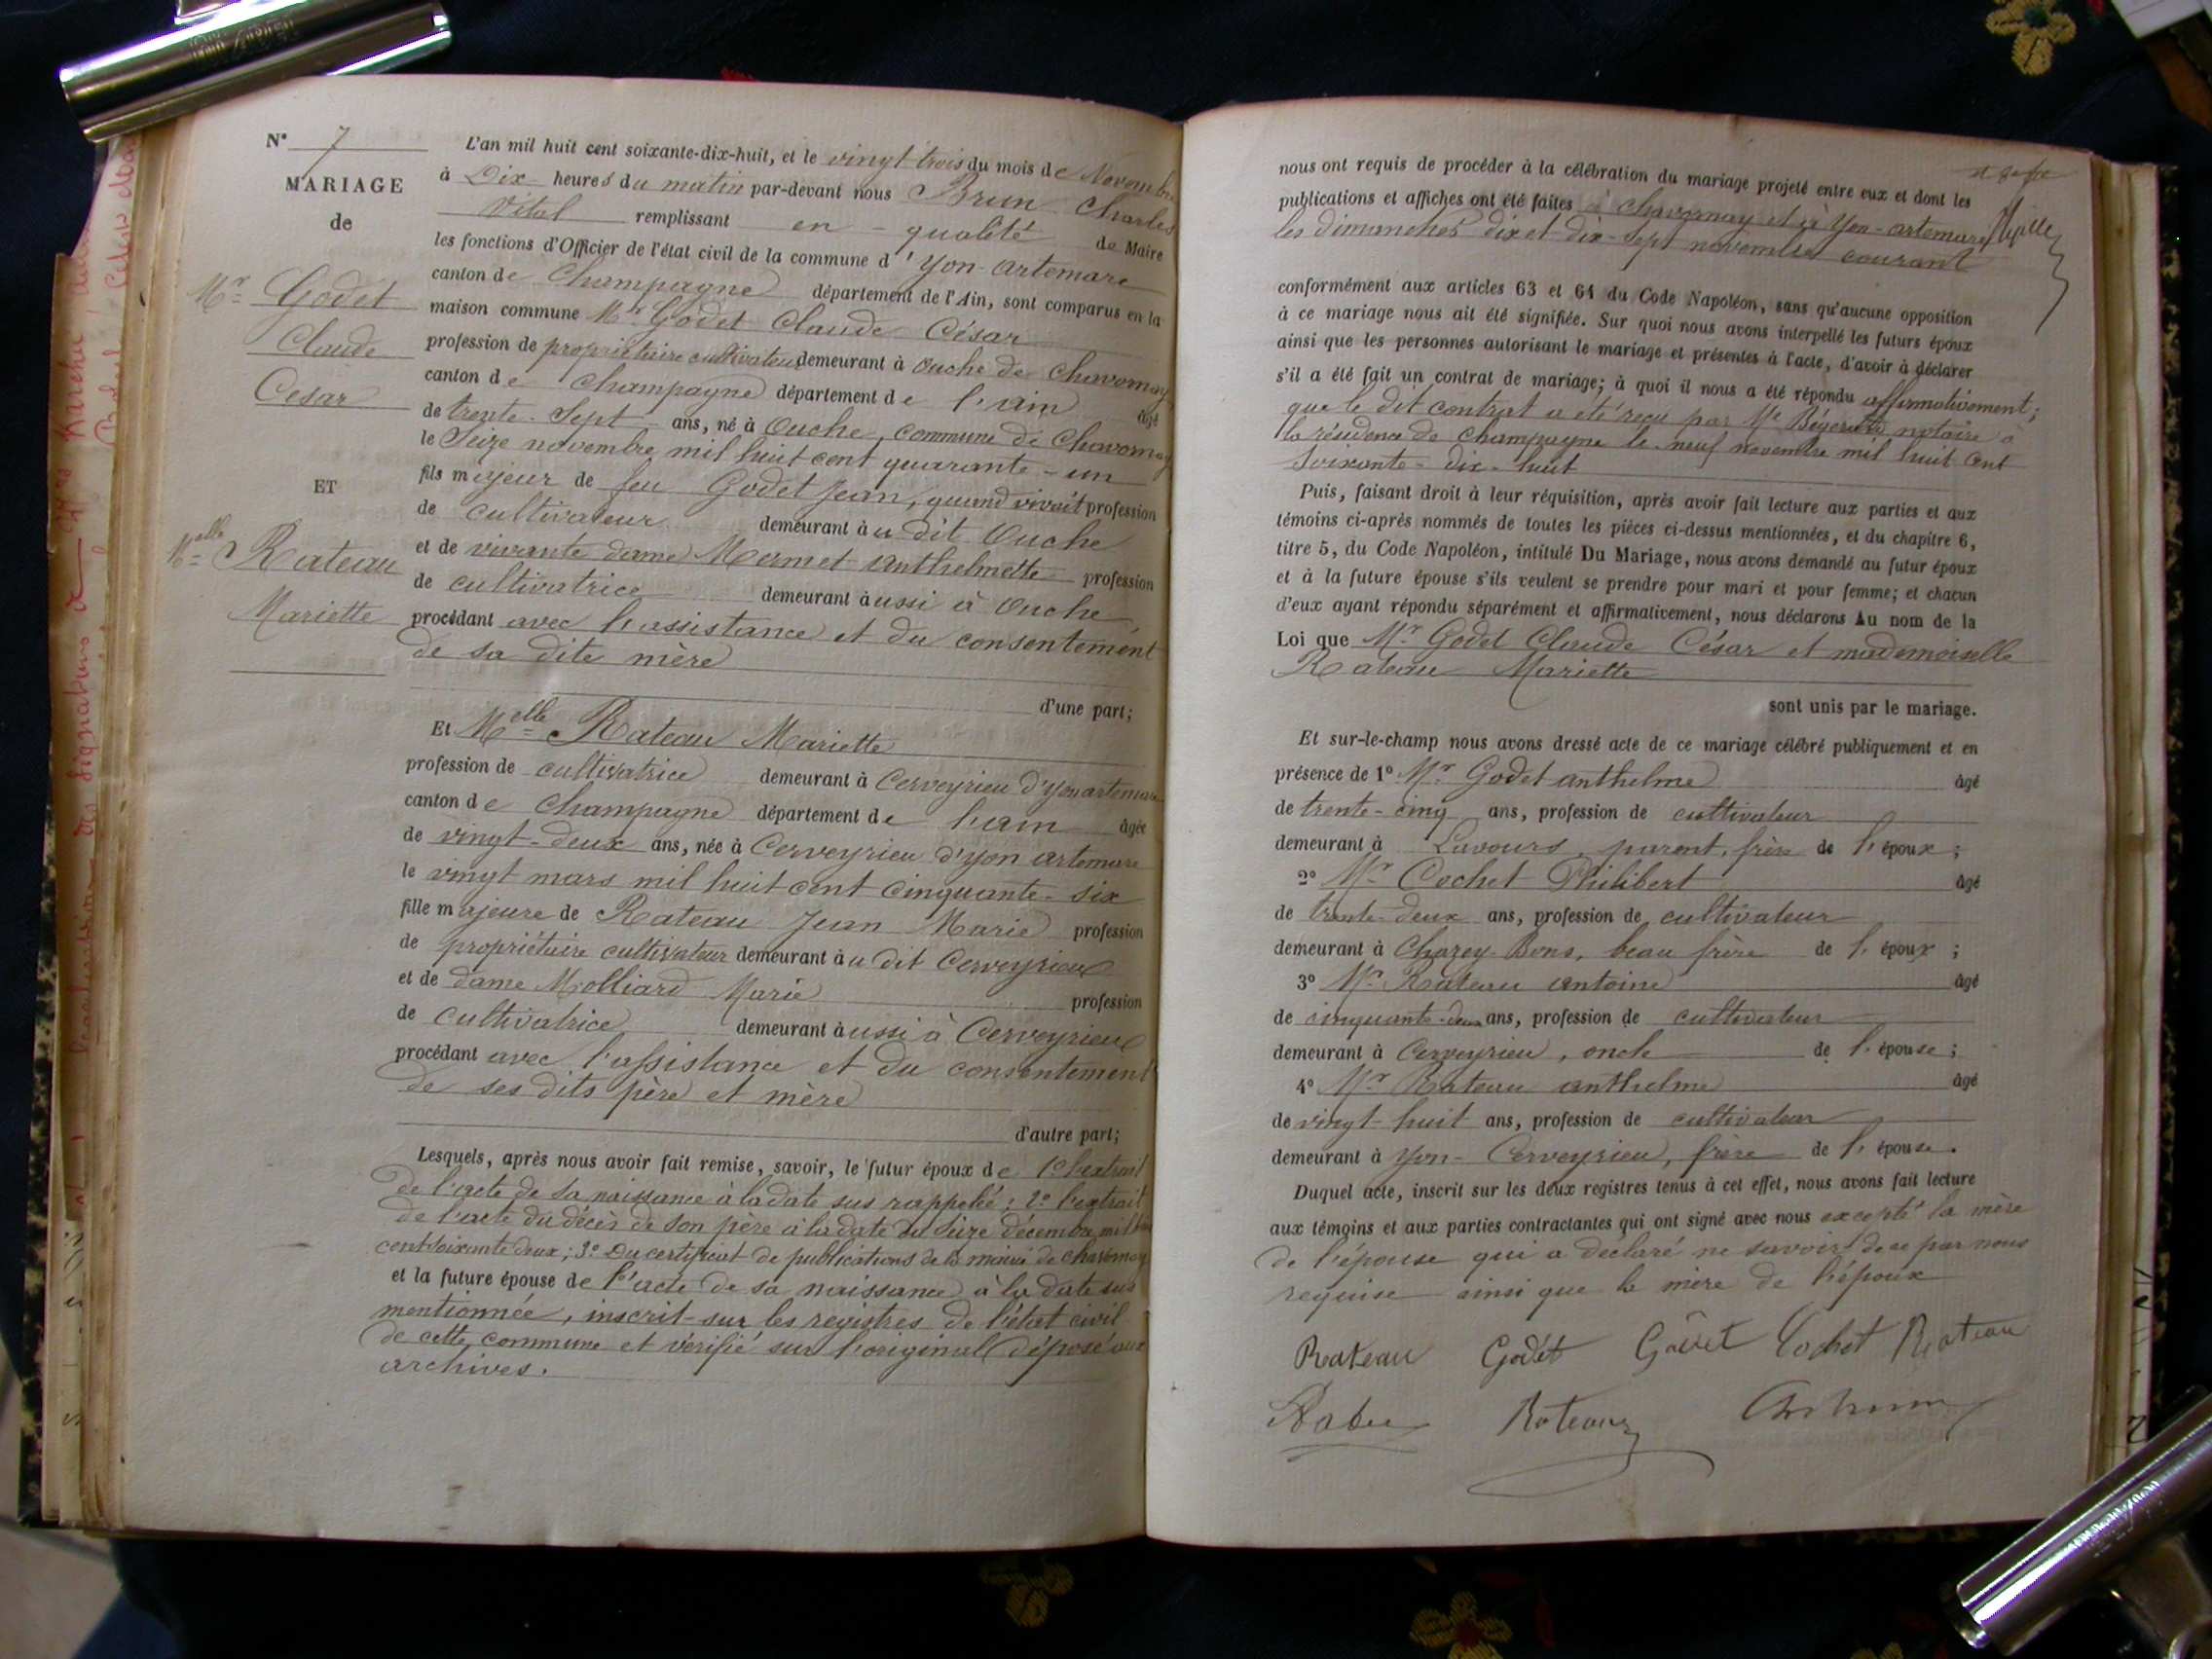 N° 7
MARIAGE
de
Mr Godet
Claude
César
ET
Melle Rateau
Mariette
L'an mil huit cent soixante-dix-huit, et le vingt-trois du mois de Novembre
à Dix heures du matin par-devant nous Brun Charles
Vital remplissant en qualité de Maire
les fonctions d'Officier de l'état civil de la commune d'Yon-artemare
canton de Champagne département de l'Ain, sont comparus en la
maison commune Mr Godet Claude César
profession de propriétaire cultivateur demeurant à Ouche de Chavornay
canton de Champagne département de l'ain âgé
de trente-Sept ans, né à Ouche, commune de Chavornay
le Seize novembre mil huit cent quarante-un
fils majeur de feu Godet Jean, quand vivait profession
de cultivateur demeurant au dit Ouche
et de vivante dame Mermet anthelmette profession
de cultivatrice demeurant aussi à Ouche,
procédant avec l'assistance et du consentement
de sa dite mère
d'une part;
Et Melle Rateau Mariette
profession de cultivatrice demeurant à Cerveyrieu d'Yon artemare
canton de Champagne département de l'ain âgée
de vingt-deux ans, née à Cerveyrieu d'yon artemare
le vingt mars mil huit cent cinquante-six
fille majeure de Rateau Jean Marie profession
de propriétaire cultivateur demeurant au dit Cerveyrieu
et de dame Molliard Marie profession
de cultivatrice demeurant aussi à Cerveyrieu
procédant avec l'assistance et du consentement
de ses dits père et mère
d'autre part;
Lesquels, après nous avoir fait remise, savoir, le futur époux de 1° l'extrait
de l'acte de sa naissance à la date sus rappelée; 2° l'extrait
de l'acte du décès de son père à la date du Seize Décembre mil huit
cent soixante deux; 3° Du certificat de publications de la mairie de chavornay
et la future épouse de l'acte de sa naissance à la date sus
mentionnée, inscrit sur les registres de l'état civil
de cette commune et vérifié sur l'original déposé aux
archives.
nous ont requis de procéder à la célébration du mariage projeté entre eux et dont les
publications et affiches ont été faites à Chavornay et à Yon-artemare
les dimanches dix et dix-Sept novembre courant
conformément aux articles 63 et 64 du Code Napoléon, sans qu'aucune opposition
à ce mariage nous ait été signifiée. Sur quoi nous avons interpellé les futurs époux
ainsi que les personnes autorisant le mariage et présentes à l'acte, d'avoir à déclarer
s'il a été fait un contrat de mariage; à quoi il nous a été répondu affirmativement;
que le dit contrat a été reçu par Me notaire à
la résidence de champagne le neuf novembre mil huit cent
Soixante-dix-huit
Puis, faisant droit à leur réquisition, après avoir fait lecture aux parties et aux
témoins ci-après nommés de toutes les pièces ci-dessus mentionnées, et du chapitre 6,
titre 5, du Code Napoléon, intitulé Du Mariage, nous avons demandé au futur époux
et à la future épouse s'ils veulent se prendre pour mari et pour femme; et chacun
d'eux ayant répondu séparément et affirmativement, nous déclarons Au nom de la
Loi que Mr Godet Claude César et mademoiselle
Rateau Mariette
sont unis par le mariage.
Et sur-le-champ nous avons dressé acte de ce mariage célébré publiquement et en
présence de 1° Mr Godet anthelme âgé
de trente-cinq ans, profession de cultivateur
demeurant à Lavours, parent, frère de l'époux;
2° Mr Cochet Philibert âgé
de trente-deux ans, profession de cultivateur
demeurant à Chazey-Bons, beau frère de l'époux;
3° Mr Rateau antoine âgé
de cinquante-deux ans, profession de cultivateur
demeurant à Cerveyrieu, oncle de l'épouse;
4° Mr Rateau anthelme âgé
de vingt-huit ans, profession de cultivateur
demeurant à Yon-Cerveyrieu, frère de l'épouse.
Duquel acte, inscrit sur les deux registres tenus à cet effet, nous avons fait lecture
aux témoins et aux parties contractantes qui ont signé avec nous excepté la mère
de l'épouse qui a déclaré ne savoir de ce par nous
requise ainsi que la mère de l'époux
Rateau Godet Godet Cochet Rateau
Rateau